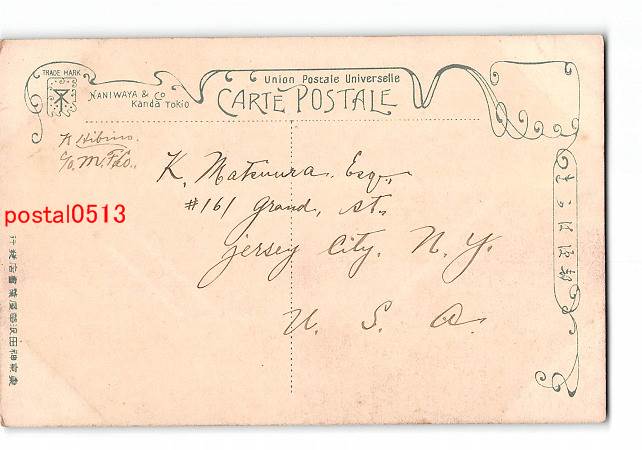 TRADE MARK
NANIWAYA & Co
KANDA TOKIO
Union Postale Universelle
CARTE POSTALE
K Hibino.
C/o M.
K. Matsuura. Esq.,
#161 Grand, st.
Jersey City. N. Y.
U. S. A.
postal0513
きかは便郵
行發店書葉屋華浪田神京東